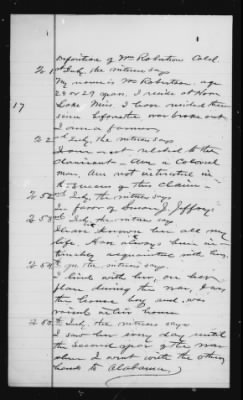 Deposition of Wm Robertson Cold.
To 1st Inty, the witness says
My name is Wm Robertson, age
28 or 29 years. I reside at Horn
17
Lake Miss. I have resided there
since before the war broke out
I am a farmer,
To 2nd Inty, the witness says
I am not related to the
claimant - Am a Colored
man, Am not interested in
the success of this claim -
To 52nd Inty, the witness says
In favor of Susan J. Jeffrey
To 53rd Inty, the witness says
I have known her all my
life. Have always been in-
timately acquainted with her,
To 54 Inty, the witness says,
I lived with her, on her
place during the war, I was
the house boy and, was
raised at her house
To 55th Inty, the witness says
I saw her every day until
the second year of the war
when I went with the other
hands to Alabama